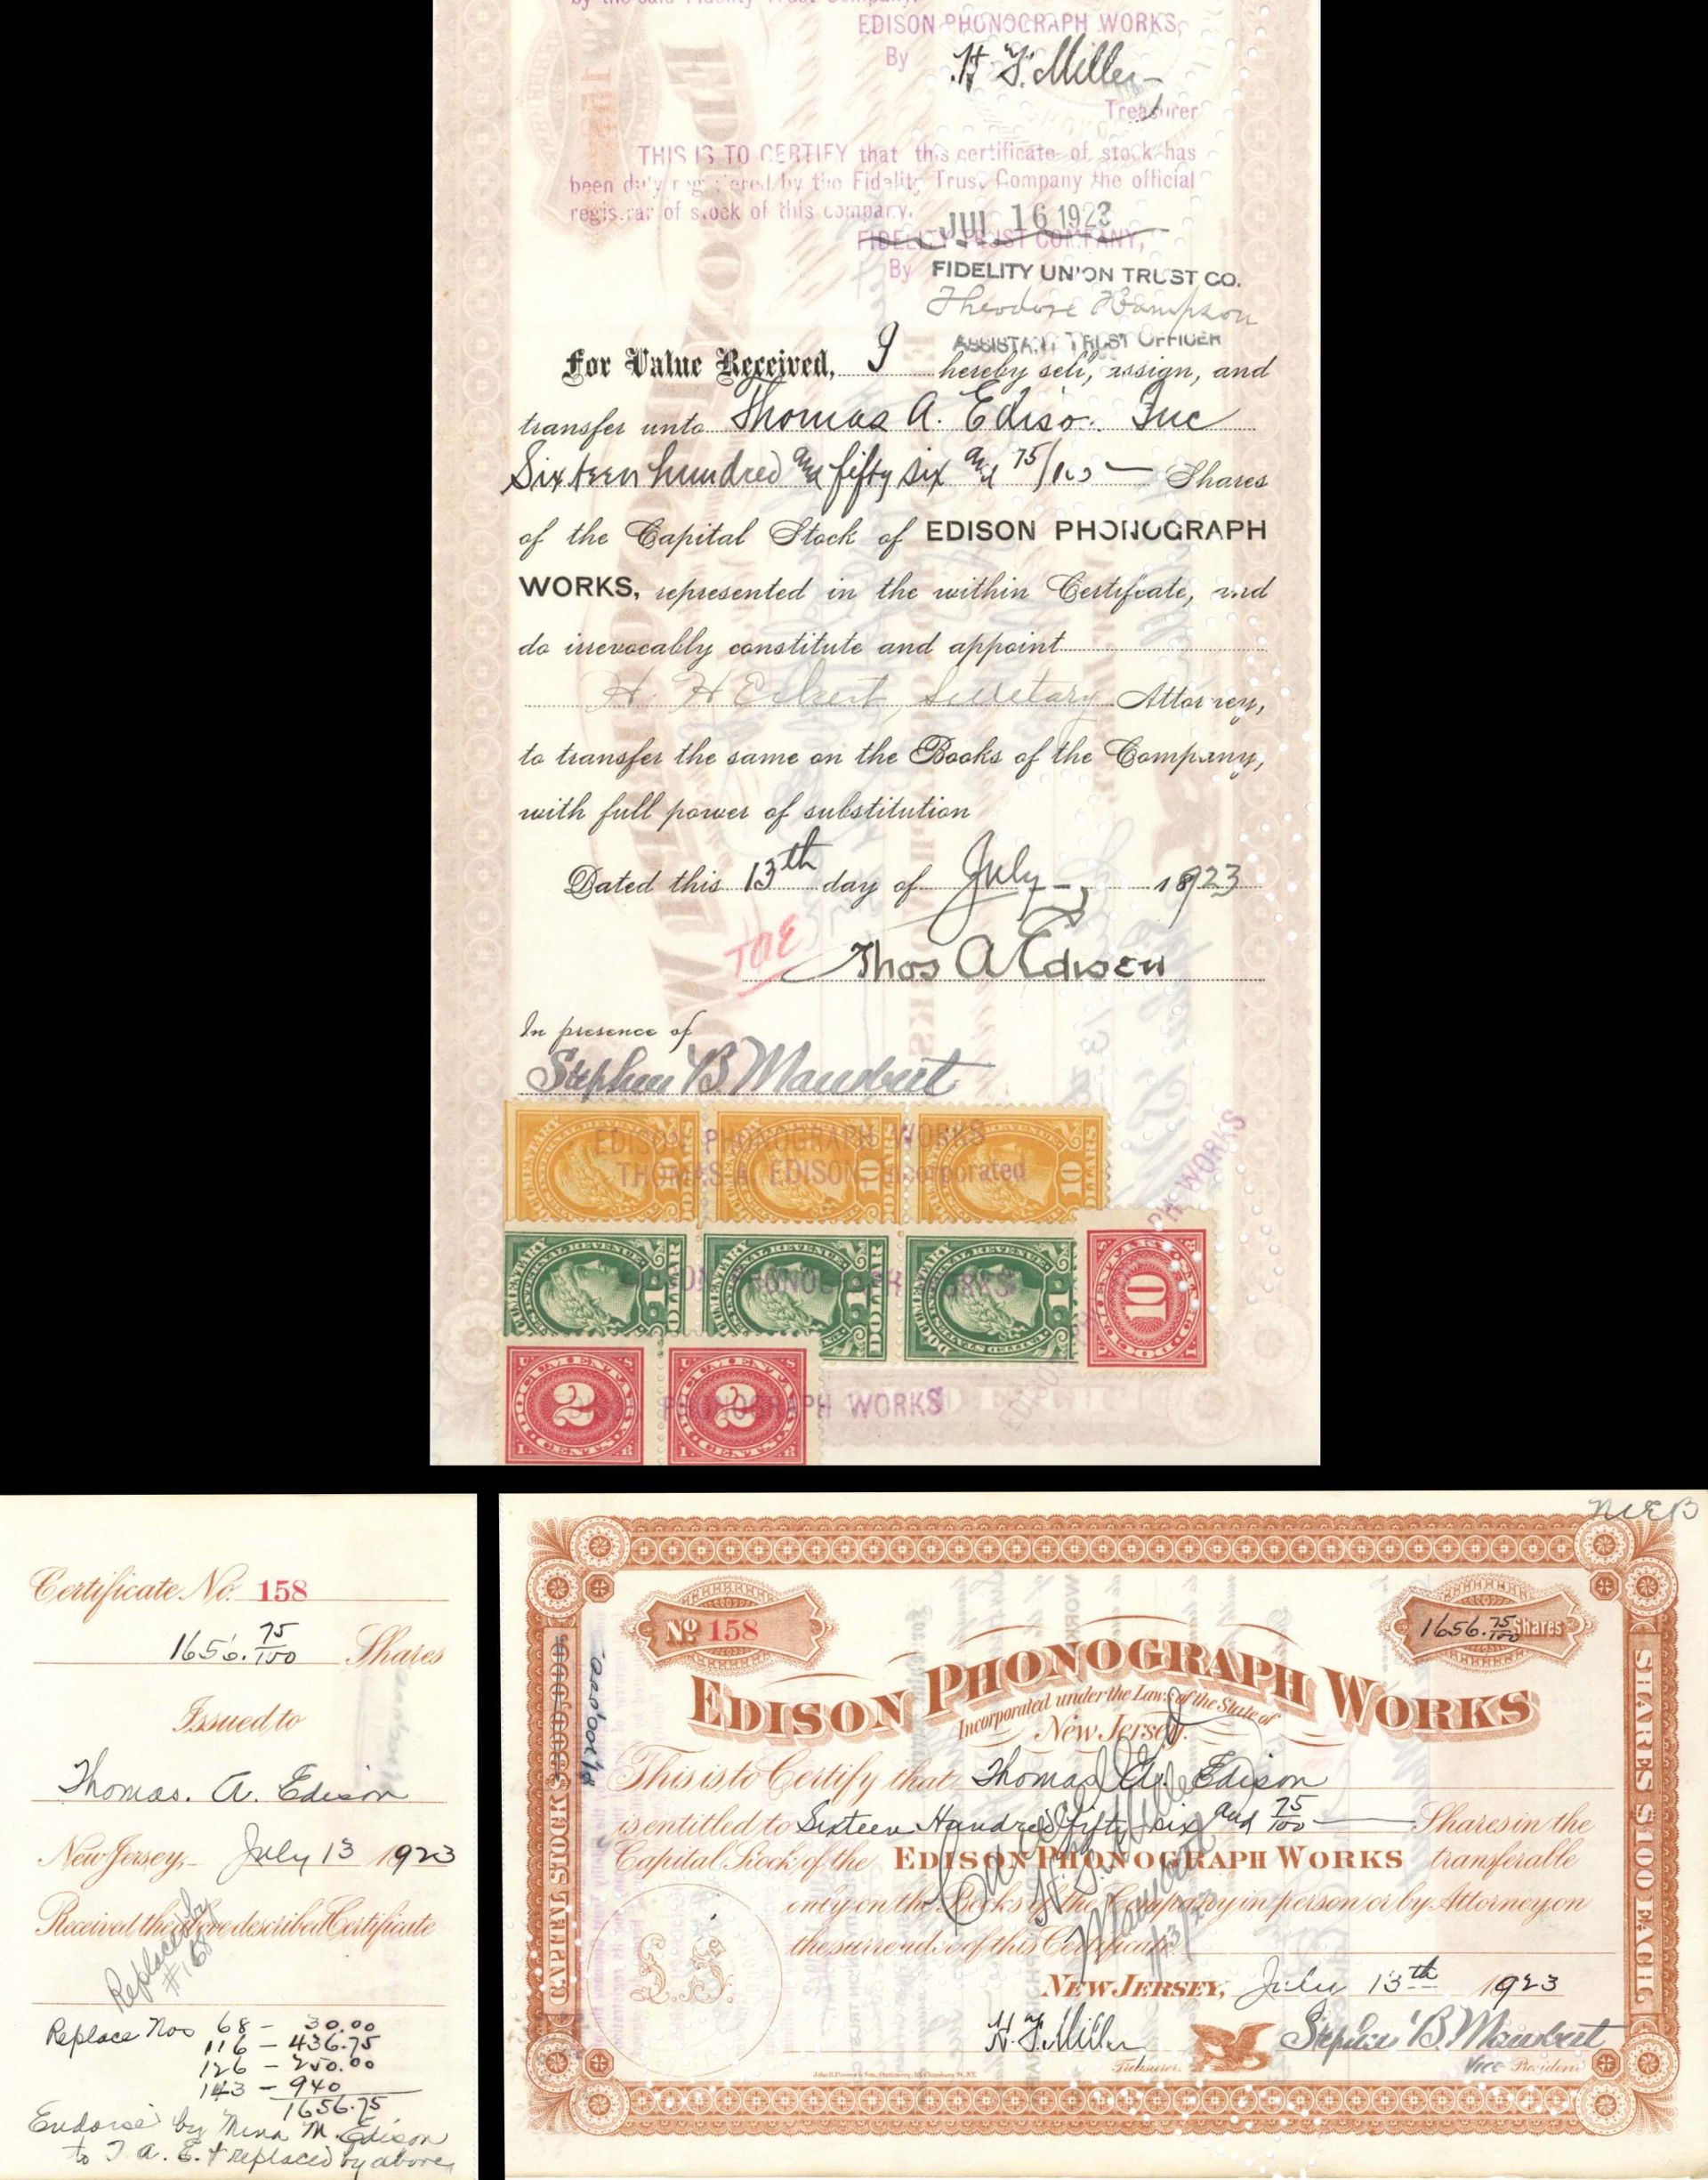 by the said Fidelity Trust Company.
EDISON PHONOGRAPH WORKS,
By H. F. Miller
Treasurer
THIS IS TO CERTIFY that this certificate of stock has
been duly registered by the Fidelity Trust Company the official
registrar of stock of this company.
JUL 16 1923
FIDELITY TRUST COMPANY,
By FIDELITY UNION TRUST CO.
Theodore Hampson
ASSISTANT TRUST OFFICER
For Value Received, I hereby sell, assign, and
transfer unto Thomas A. Edison Inc
Sixteen hundred and fifty six and 75/100 — Shares
of the Capital Stock of EDISON PHONOGRAPH
WORKS, represented in the within Certificate, and
do irrevocably constitute and appoint
H. H. Eckert, Secretary Attorney,
to transfer the same on the Books of the Company,
with full power of substitution
Dated this 13th day of July 1923
TAE Thos A Edison
In presence of
Stephen B. Mambert
EDISON PHONOGRAPH WORKS
THOMAS A. EDISON, Incorporated
EDISON PHONOGRAPH WORKS
10
PHONOGRAPH WORKS
2 2
DOCUMENTARY
CENTS
Certificate No. 158
1656. 75/100 Shares
Issued to
Thomas. A. Edison
New Jersey, July 13 1923
Received the above described Certificate
Replaced by
#168
Replace Nos 68 - 30.00
116 - 436.75
126 - 250.00
143 - 940
1656.75
Endorsed by Mina M. Edison
to T. A. E. & replaced by above
No 158
1656. 75/100 Shares
EDISON PHONOGRAPH WORKS
Incorporated under the Laws of the State of
New Jersey.
This is to Certify that Thomas A. Edison
is entitled to Sixteen Hundred fifty six and 75/100 Shares in the
Capital Stock of the EDISON PHONOGRAPH WORKS transferable
only on the Books of the Company in person or by Attorney on
the surrender of this Certificate.
NEW JERSEY, July 13th 1923
H. F. Miller Stephen B. Mambert
Treasurer. Vice President
CAPITAL STOCK
SHARES $100 EACH
Cancelled